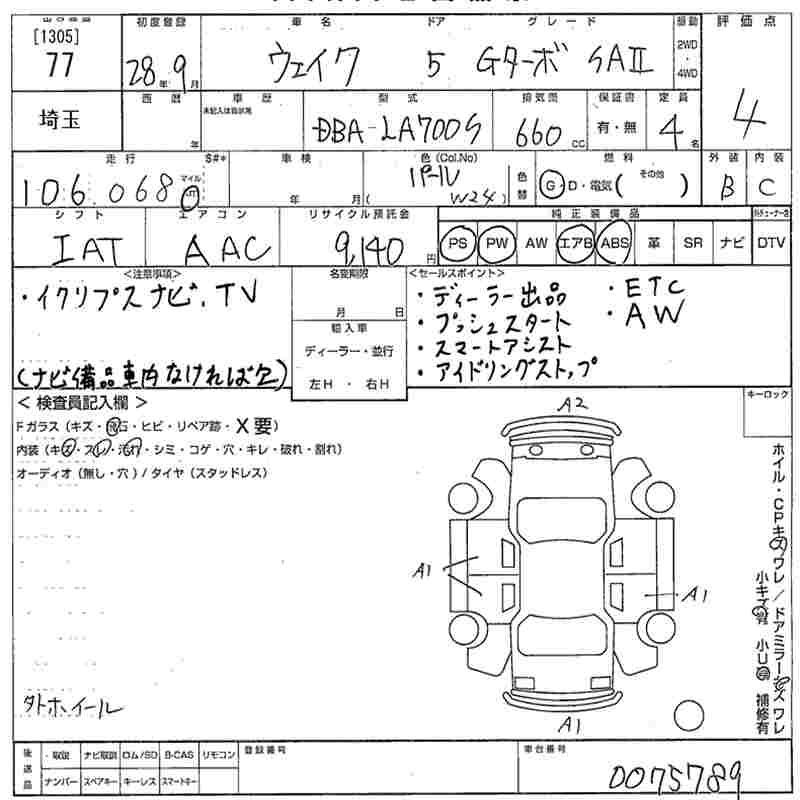 [1305] 初度登録 車名 ドア グレード 駆動 評価点
77 28年9月 ウェイク 5 Gターボ SAⅡ 2WD ・ 4WD 4
西暦 車歴 型式 排気量 保証書 定員
埼玉 年 未記入は自家用 DBA-LA700S 660 cc 有・無 4名
走行 S#* 車検 色(Col.No) 燃料 外装 内装
106,068 マイル 年 月( パール W24) 色替 G・D・電気( その他 ) B C
シフト エアコン リサイクル預託金 純正装備品
IAT AAC 9,140円 PS PW AW エアB ABS 革 SR ナビ DTV
<注意事項> 名変期限 <セールスポイント>
・イクリプスナビ、TV 月 日 ・ディーラー出品 ・ETC
輸入車 ・プッシュスタート ・AW
ディーラー・並行 ・スマートアシスト
(ナビ備品車内なければ欠) 左H ・ 右H ・アイドリングストップ
< 検査員記入欄 > キーロック
Fガラス(キズ・飛石・ヒビ・リペア跡・X要)
内装(キズ・スレ・汚れ・シミ・コゲ・穴・キレ・破れ・割れ)
オーディオ(無し・穴)/タイヤ(スタッドレス)
A2
A1
A1
A1
ホイル・CPキズ ワレ/ドアミラーキズ ワレ
小キズ 小U 補修有
外ホイール
後送品 ・取説 ナビ取説 ロム/SD B-CAS リモコン 登録番号 車台番号
ナンバー スペアキー キーレス スマートキー 0075789